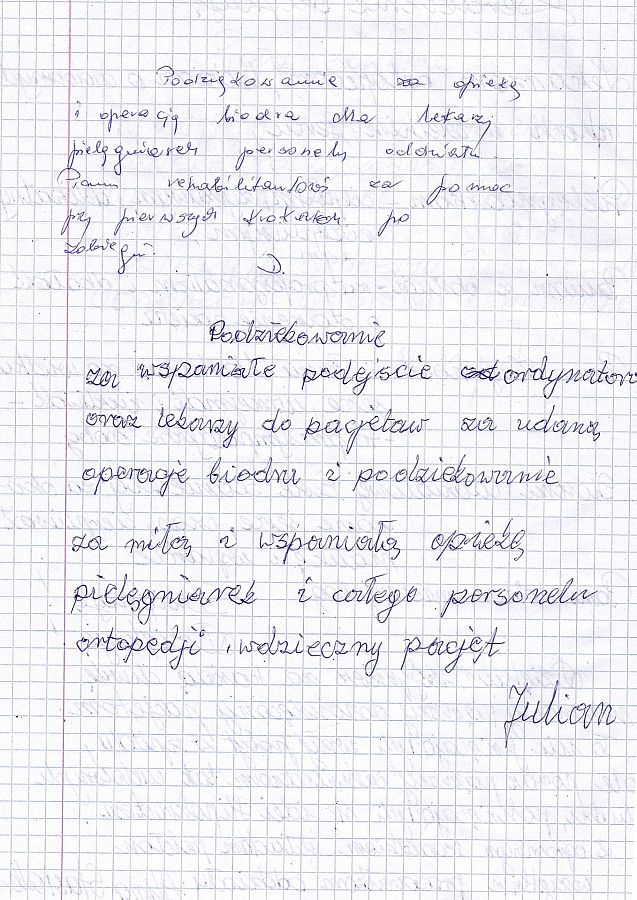 Podziękowanie za opiekę
i operację biodra dla lekarzy
pielęgniarek personelu oddziału.
Panu rehabilitantowi za pomoc
przy pierwszych krokach po
zabiegu.
D.
Podziekowanie
za wspaniałe podejście ordynatora
oraz lekarzy do pacjetaw za udaną
operacje biodra i podziekowanie
za miłą i wspaniałą opiekę
pielęgniarek i całego personelu
ortopedji wdzieczny pacjęt
Julian